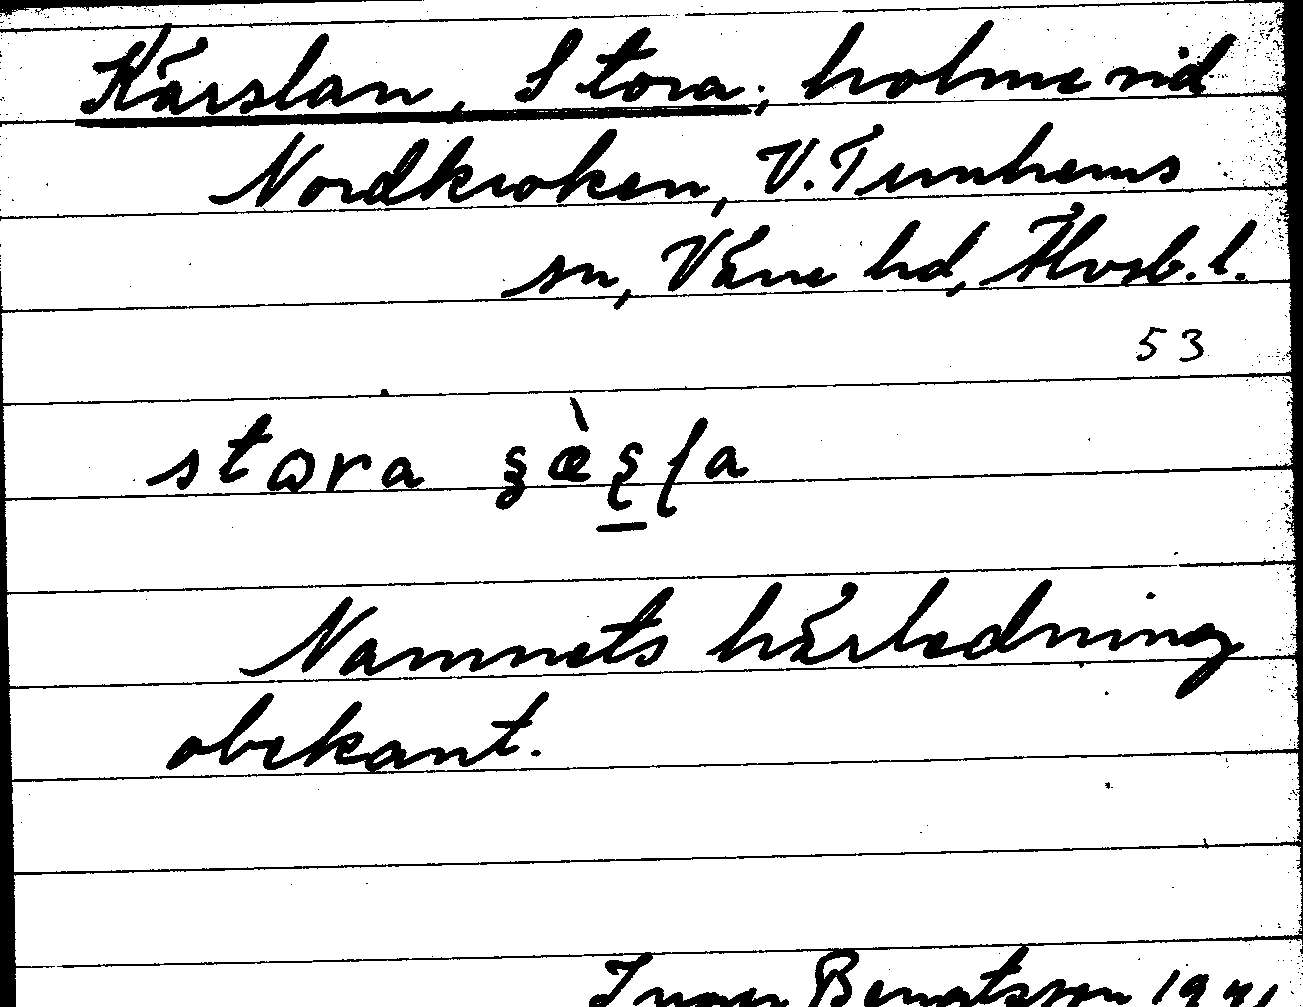 Kärslan, Stora; holme vid
Nordkroken, V. Tunhems
sn, Väne hd, Älvsb. l.
53
stora
Namnets härledning
obekant.
Bengtsson